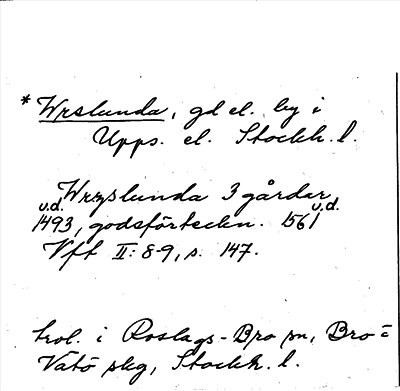 * Wrslunda, gd el. by i
Upps. el. Stockh. l.
Wrgslunda 3 gårdar
u.d. u.d.
1493, godsförteckn. 1561
Vft II: 8-9, s. 147.
trol. i Roslags-Bro sn, Bro-
Vätö skg, Stockh. l.